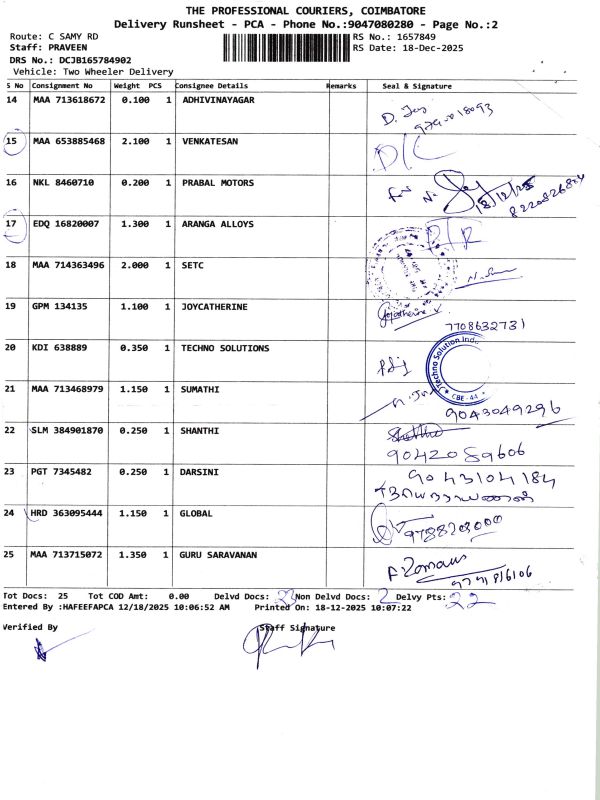 THE PROFESSIONAL COURIERS, COIMBATORE
Delivery Runsheet - PCA - Phone No.:9047080280 - Page No.:2
Route: C SAMY RD
RS No.: 1657849
Staff: PRAVEEN
RS Date: 18-Dec-2025
DRS No.: DCJB165784902
Vehicle: Two Wheeler Delivery
S No Consignment No Weight PCS Consignee Details Remarks Seal & Signature
14 MAA 713618672 0.100 1 ADHIVINAYAGAR
15 MAA 653885468 2.100 1 VENKATESAN D/C
16 NKL 8460710 0.200 1 PRABAL MOTORS 18/12/25
17 EDQ 16820007 1.300 1 ARANGA ALLOYS
18 MAA 714363496 2.000 1 SETC
19 GPM 134135 1.100 1 JOYCATHERINE Joycatherine
7708632731
20 KDI 638889 0.350 1 TECHNO SOLUTIONS Techno Solution CBE-44
21 MAA 713468979 1.150 1 SUMATHI
9043049296
22 SLM 384901870 0.250 1 SHANTHI
9042089606
23 PGT 7345482 0.250 1 DARSINI 9043104184
24 HRD 363095444 1.150 1 GLOBAL
25 MAA 713715072 1.350 1 GURU SARAVANAN
Tot Docs: 25 Tot COD Amt: 0.00 Delvd Docs: 23 Non Delvd Docs: 2 Delvy Pts: 22
Entered By :HAFEEFAPCA 12/18/2025 10:06:52 AM Printed On: 18-12-2025 10:07:22
Verified By
Staff Signature